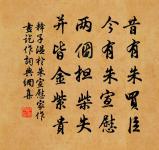 昔有朱買臣
今有朱宣慰
兩個担柴夫
并皆金紫貴
释子温於朱宣慰家作
畫说作詞典個集